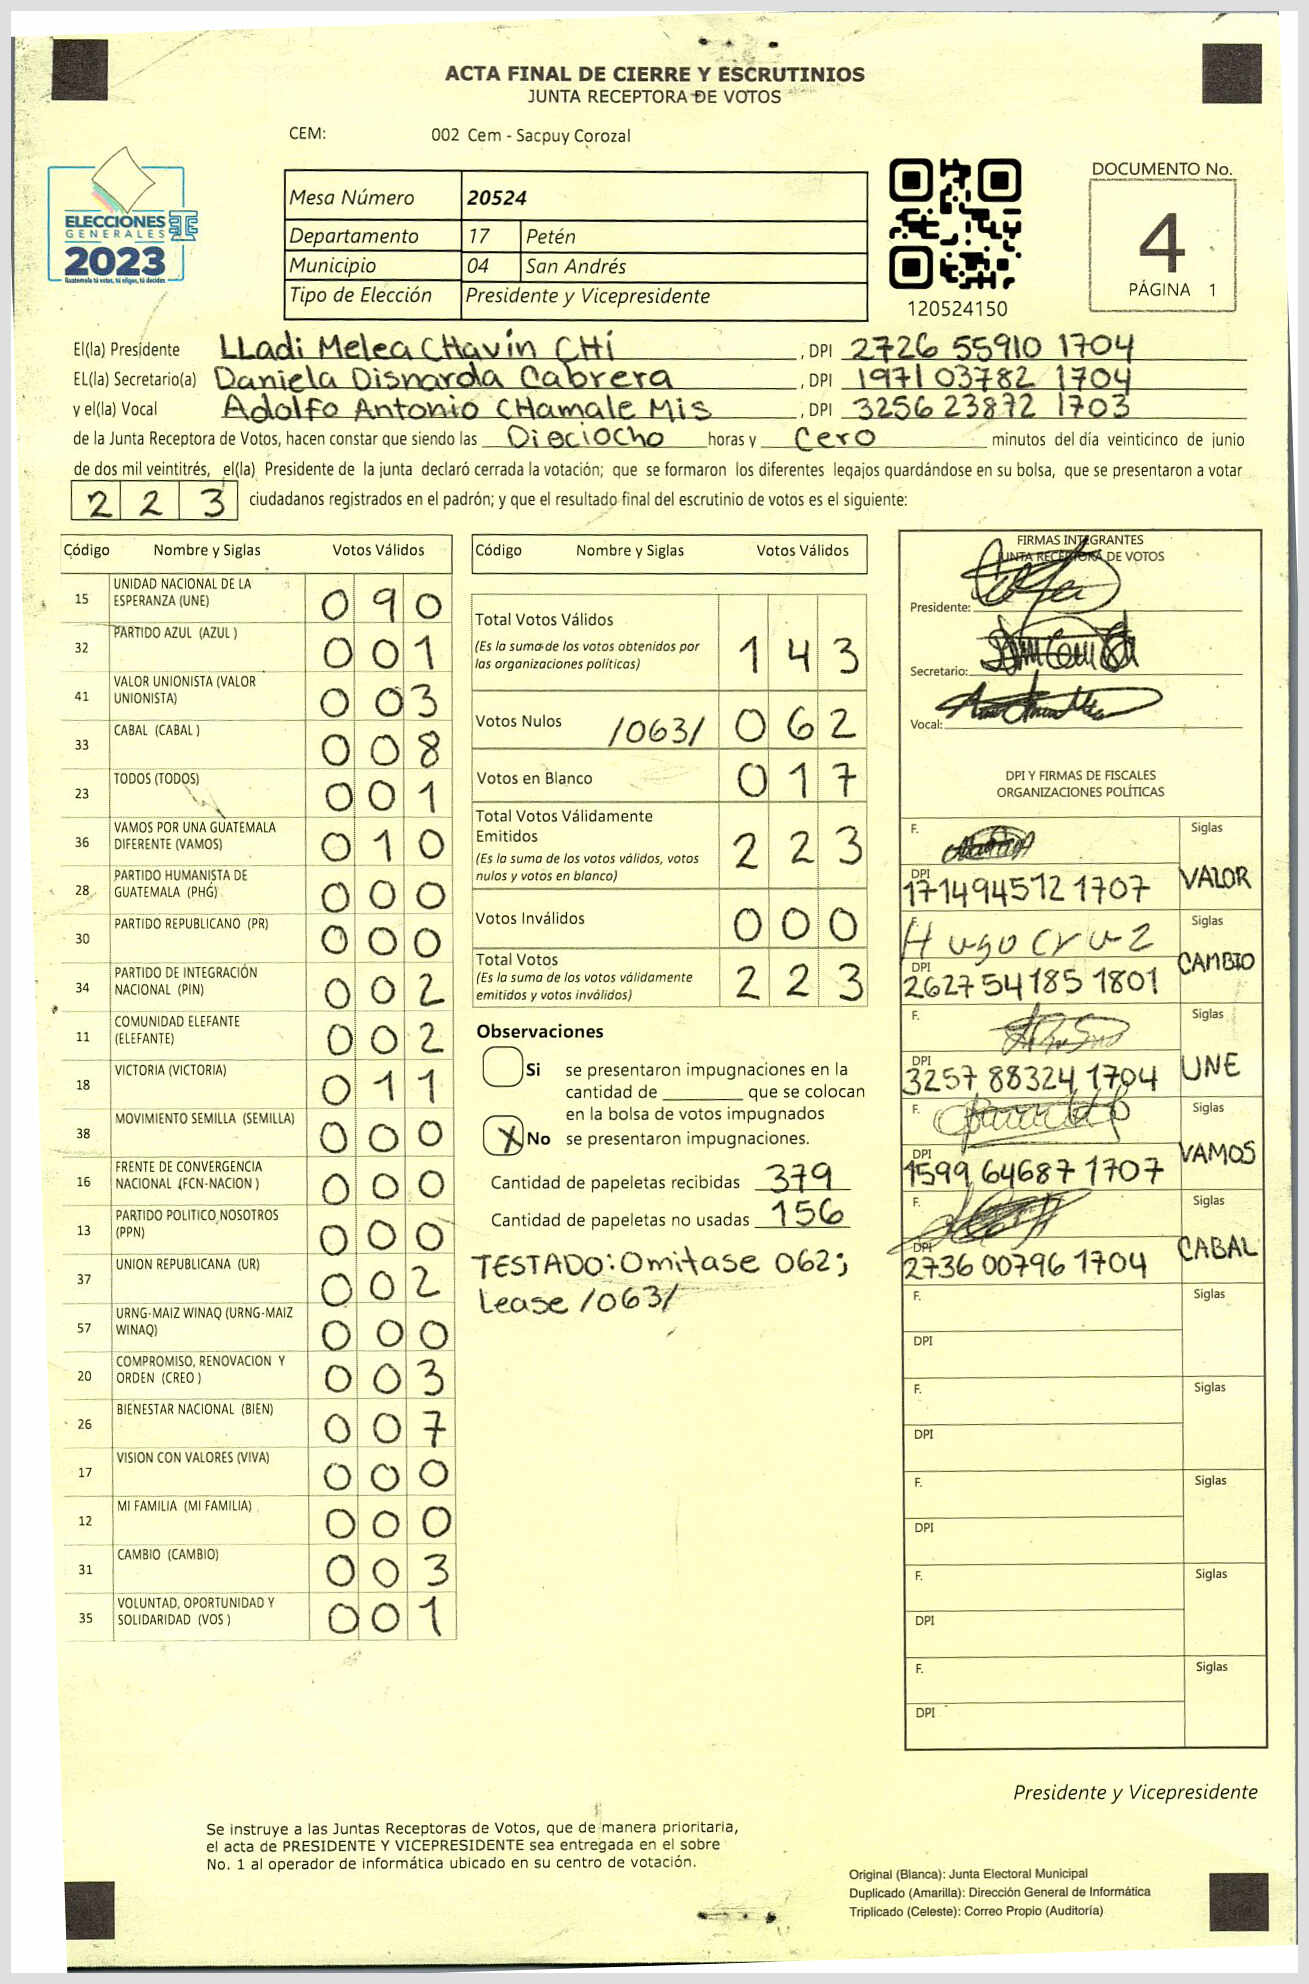 ACTA FINAL DE CIERRE Y ESCRUTINIOS
JUNTA RECEPTORA DE VOTOS
CEM: 002 Cem - Sacpuy Corozal
ELECCIONES
GENERALES
2023
Guatemala tú votas, tú eliges, tú decides
Mesa Número 20524
Departamento 17 Petén
Municipio 04 San Andrés
Tipo de Elección Presidente y Vicepresidente
120524150
DOCUMENTO No.
4
PÁGINA 1
El(la) Presidente LLadi Melea CHavin CHí , DPI 2726 55910 1704
EL(la) Secretario(a) Daniela Disnarda Cabrera , DPI 1971 03782 1704
y el(la) Vocal Adolfo Antonio CHamale Mis , DPI 3256 23872 1703
de la Junta Receptora de Votos, hacen constar que siendo las Dieciocho horas y Cero minutos del día veinticinco de junio
de dos mil veintitrés, el(la) Presidente de la junta declaró cerrada la votación; que se formaron los diferentes legajos guardándose en su bolsa, que se presentaron a votar
2 2 3 ciudadanos registrados en el padrón; y que el resultado final del escrutinio de votos es el siguiente:
Código Nombre y Siglas Votos Válidos
15 UNIDAD NACIONAL DE LA ESPERANZA (UNE) 0 9 0
32 PARTIDO AZUL (AZUL ) 0 0 1
41 VALOR UNIONISTA (VALOR UNIONISTA) 0 0 3
33 CABAL (CABAL ) 0 0 8
23 TODOS (TODOS) 0 0 1
36 VAMOS POR UNA GUATEMALA DIFERENTE (VAMOS) 0 1 0
28 PARTIDO HUMANISTA DE GUATEMALA (PHG) 0 0 0
30 PARTIDO REPUBLICANO (PR) 0 0 0
34 PARTIDO DE INTEGRACIÓN NACIONAL (PIN) 0 0 2
11 COMUNIDAD ELEFANTE (ELEFANTE) 0 0 2
18 VICTORIA (VICTORIA) 0 1 1
38 MOVIMIENTO SEMILLA (SEMILLA) 0 0 0
16 FRENTE DE CONVERGENCIA NACIONAL (FCN-NACION ) 0 0 0
13 PARTIDO POLITICO NOSOTROS (PPN) 0 0 0
37 UNION REPUBLICANA (UR) 0 0 2
57 URNG-MAIZ WINAQ (URNG-MAIZ WINAQ) 0 0 0
20 COMPROMISO, RENOVACION Y ORDEN (CREO ) 0 0 3
26 BIENESTAR NACIONAL (BIEN) 0 0 7
17 VISION CON VALORES (VIVA) 0 0 0
12 MI FAMILIA (MI FAMILIA) 0 0 0
31 CAMBIO (CAMBIO) 0 0 3
35 VOLUNTAD, OPORTUNIDAD Y SOLIDARIDAD (VOS ) 0 0 1
Código Nombre y Siglas Votos Válidos
Total Votos Válidos
(Es la suma de los votos obtenidos por
las organizaciones políticas) 1 4 3
Votos Nulos /063/ 0 6 2
Votos en Blanco 0 1 7
Total Votos Válidamente
Emitidos
(Es la suma de los votos válidos, votos
nulos y votos en blanco) 2 2 3
Votos Inválidos 0 0 0
Total Votos
(Es la suma de los votos válidamente
emitidos y votos inválidos) 2 2 3
Observaciones
Si se presentaron impugnaciones en la
cantidad de ________ que se colocan
en la bolsa de votos impugnados
X No se presentaron impugnaciones.
Cantidad de papeletas recibidas 379
Cantidad de papeletas no usadas 156
TESTADO: Omitase 062;
Lease /063/
FIRMAS INTEGRANTES
JUNTA RECEPTORA DE VOTOS
Presidente:
Secretario:
Vocal:
DPI Y FIRMAS DE FISCALES
ORGANIZACIONES POLÍTICAS
F. Siglas
DPI 171494512 1707 VALOR
F. Hugo Cruz Siglas
DPI 2627 54185 1801 CAMBIO
F. Siglas
DPI 3257 88324 1704 UNE
F. Siglas
DPI 1599 64687 1707 VAMOS
F. Siglas
DPI 2736 00796 1704 CABAL
F. Siglas
DPI
F. Siglas
DPI
F. Siglas
DPI
F. Siglas
DPI
F. Siglas
DPI
Presidente y Vicepresidente
Se instruye a las Juntas Receptoras de Votos, que de manera prioritaria,
el acta de PRESIDENTE Y VICEPRESIDENTE sea entregada en el sobre
No. 1 al operador de informática ubicado en su centro de votación.
Original (Blanca): Junta Electoral Municipal
Duplicado (Amarilla): Dirección General de Informática
Triplicado (Celeste): Correo Propio (Auditoría)